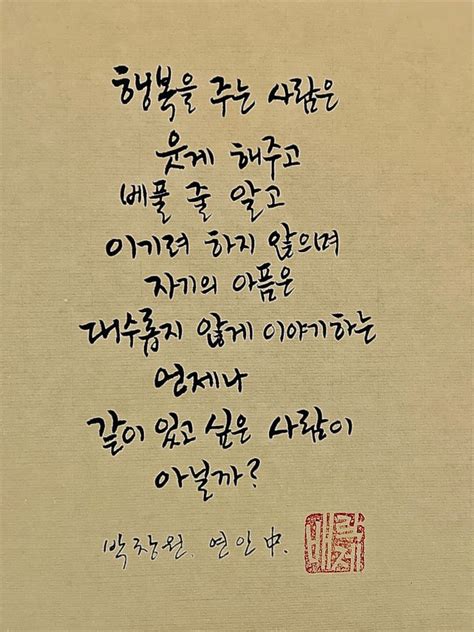 행복을 주는 사람은
웃게 해주고
베풀 줄 알고
이기려 하지 않으며
자기의 아픔은
대수롭지 않게 이야기하는
언제나
같이 있고 싶은 사람이
아닐까?
박창원. 연인中.